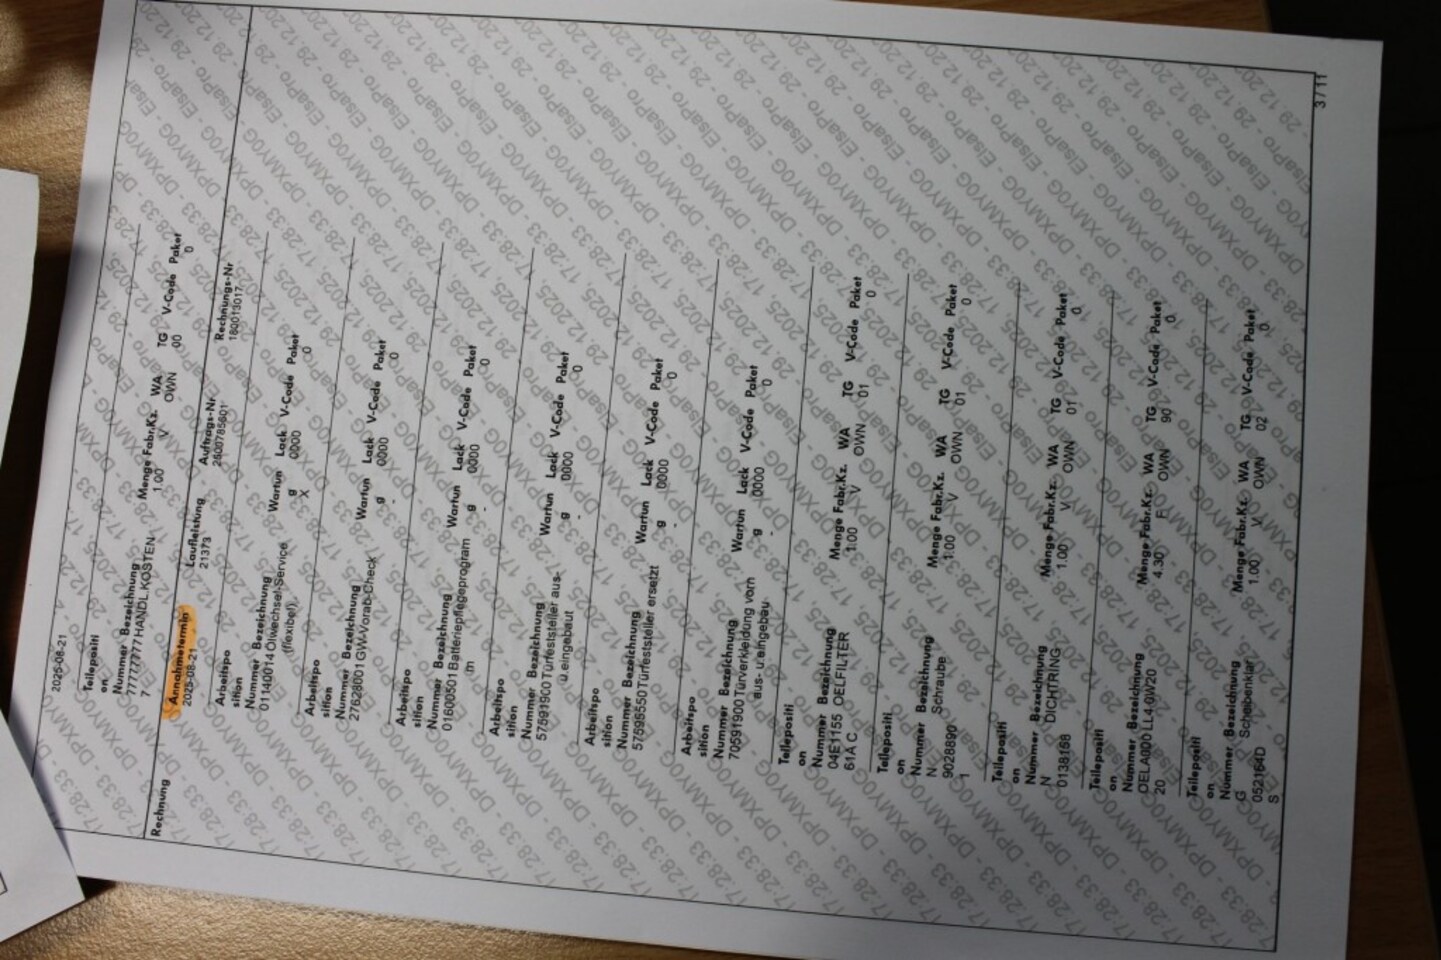 2025-08-21
Teilepositi
on
Nummer Bezeichnung Menge Fabr.Kz. WA TG V-Code Paket
77777777 HANDL.KOSTEN 1.00 V OWN 00 0
7
Rechnung Annahmetermin Laufleistung Auftrags-Nr Rechnungs-Nr
2025-08-21 21373
Arbeitspo
sition
Nummer Bezeichnung Wartun Lack V-Code Paket
01140014 Ölwechsel-Service g 0000 0
(flexibel) X
Arbeitspo
sition
Nummer Bezeichnung Wartun Lack V-Code Paket
27628001 GW-Vorab-Check g 0000 0
-
Arbeitspo
sition
Nummer Bezeichnung Wartun Lack V-Code Paket
01600501 Batteriepflegeprogram g 0000 0
m -
Arbeitspo
sition
Nummer Bezeichnung Wartun Lack V-Code Paket
57591900 Türfeststeller aus- g 0000 0
u.eingebaut -
Arbeitspo
sition
Nummer Bezeichnung Wartun Lack V-Code Paket
57595550 Türfeststeller ersetzt g 0000 0
-
Arbeitspo
sition
Nummer Bezeichnung Wartun Lack V-Code Paket
70591900 Türverkleidung vorn g 0000 0
aus- u.eingebau -
Teilepositi
on
Nummer Bezeichnung Menge Fabr.Kz. WA TG V-Code Paket
04E1155 OELFILTER 1.00 V OWN 01 0
61A C
Teilepositi
on
Nummer Bezeichnung Menge Fabr.Kz. WA TG V-Code Paket
N Schraube 1.00 V OWN 01 0
9028890
1
Teilepositi
on
Nummer Bezeichnung Menge Fabr.Kz. WA TG V-Code Paket
N DICHTRING 1.00 V OWN 01 0
0138158
Teilepositi
on
Nummer Bezeichnung Menge Fabr.Kz. WA TG V-Code Paket
OELA000 LL4 0W20 4.30 F OWN 90 0
20
Teilepositi
on
Nummer Bezeichnung Menge Fabr.Kz. WA TG V-Code Paket
G Scheibenklar 1.00 V OWN 02 0
052164D
S
3 / 11
DPXMY0G - ElsaPro - 29.12.2025, 17:28:33